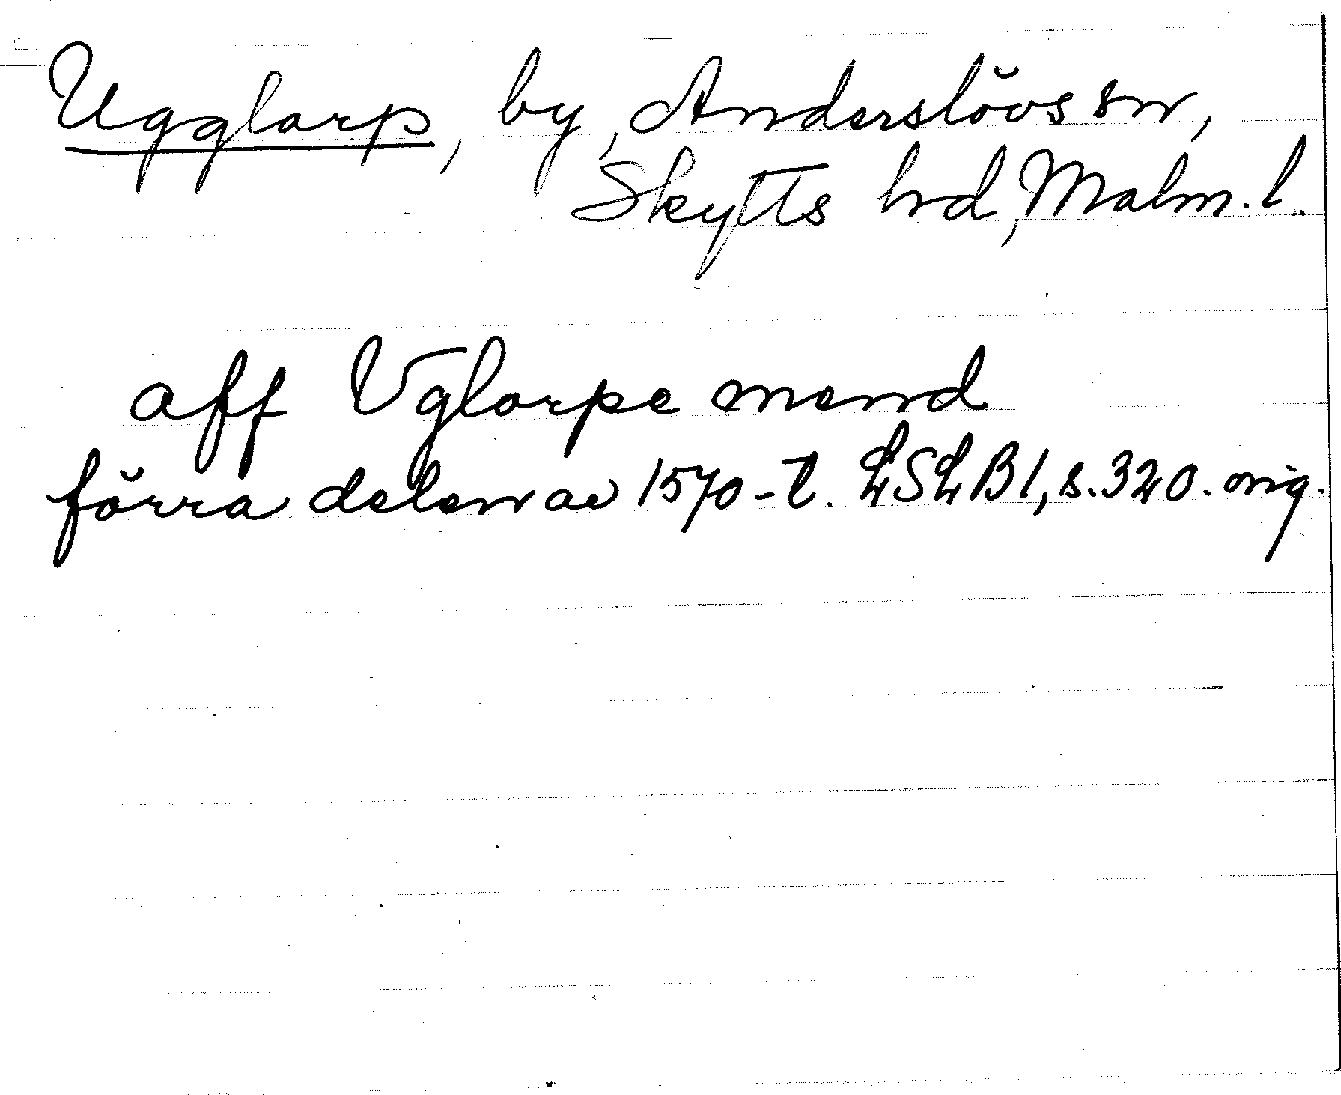 Ugglarp, by, Anderslövs sn,
Skytts hd, Malm. l.
aff Vglarpe mend
förra delen av 1570-t. LSLB1, s. 320. orig.